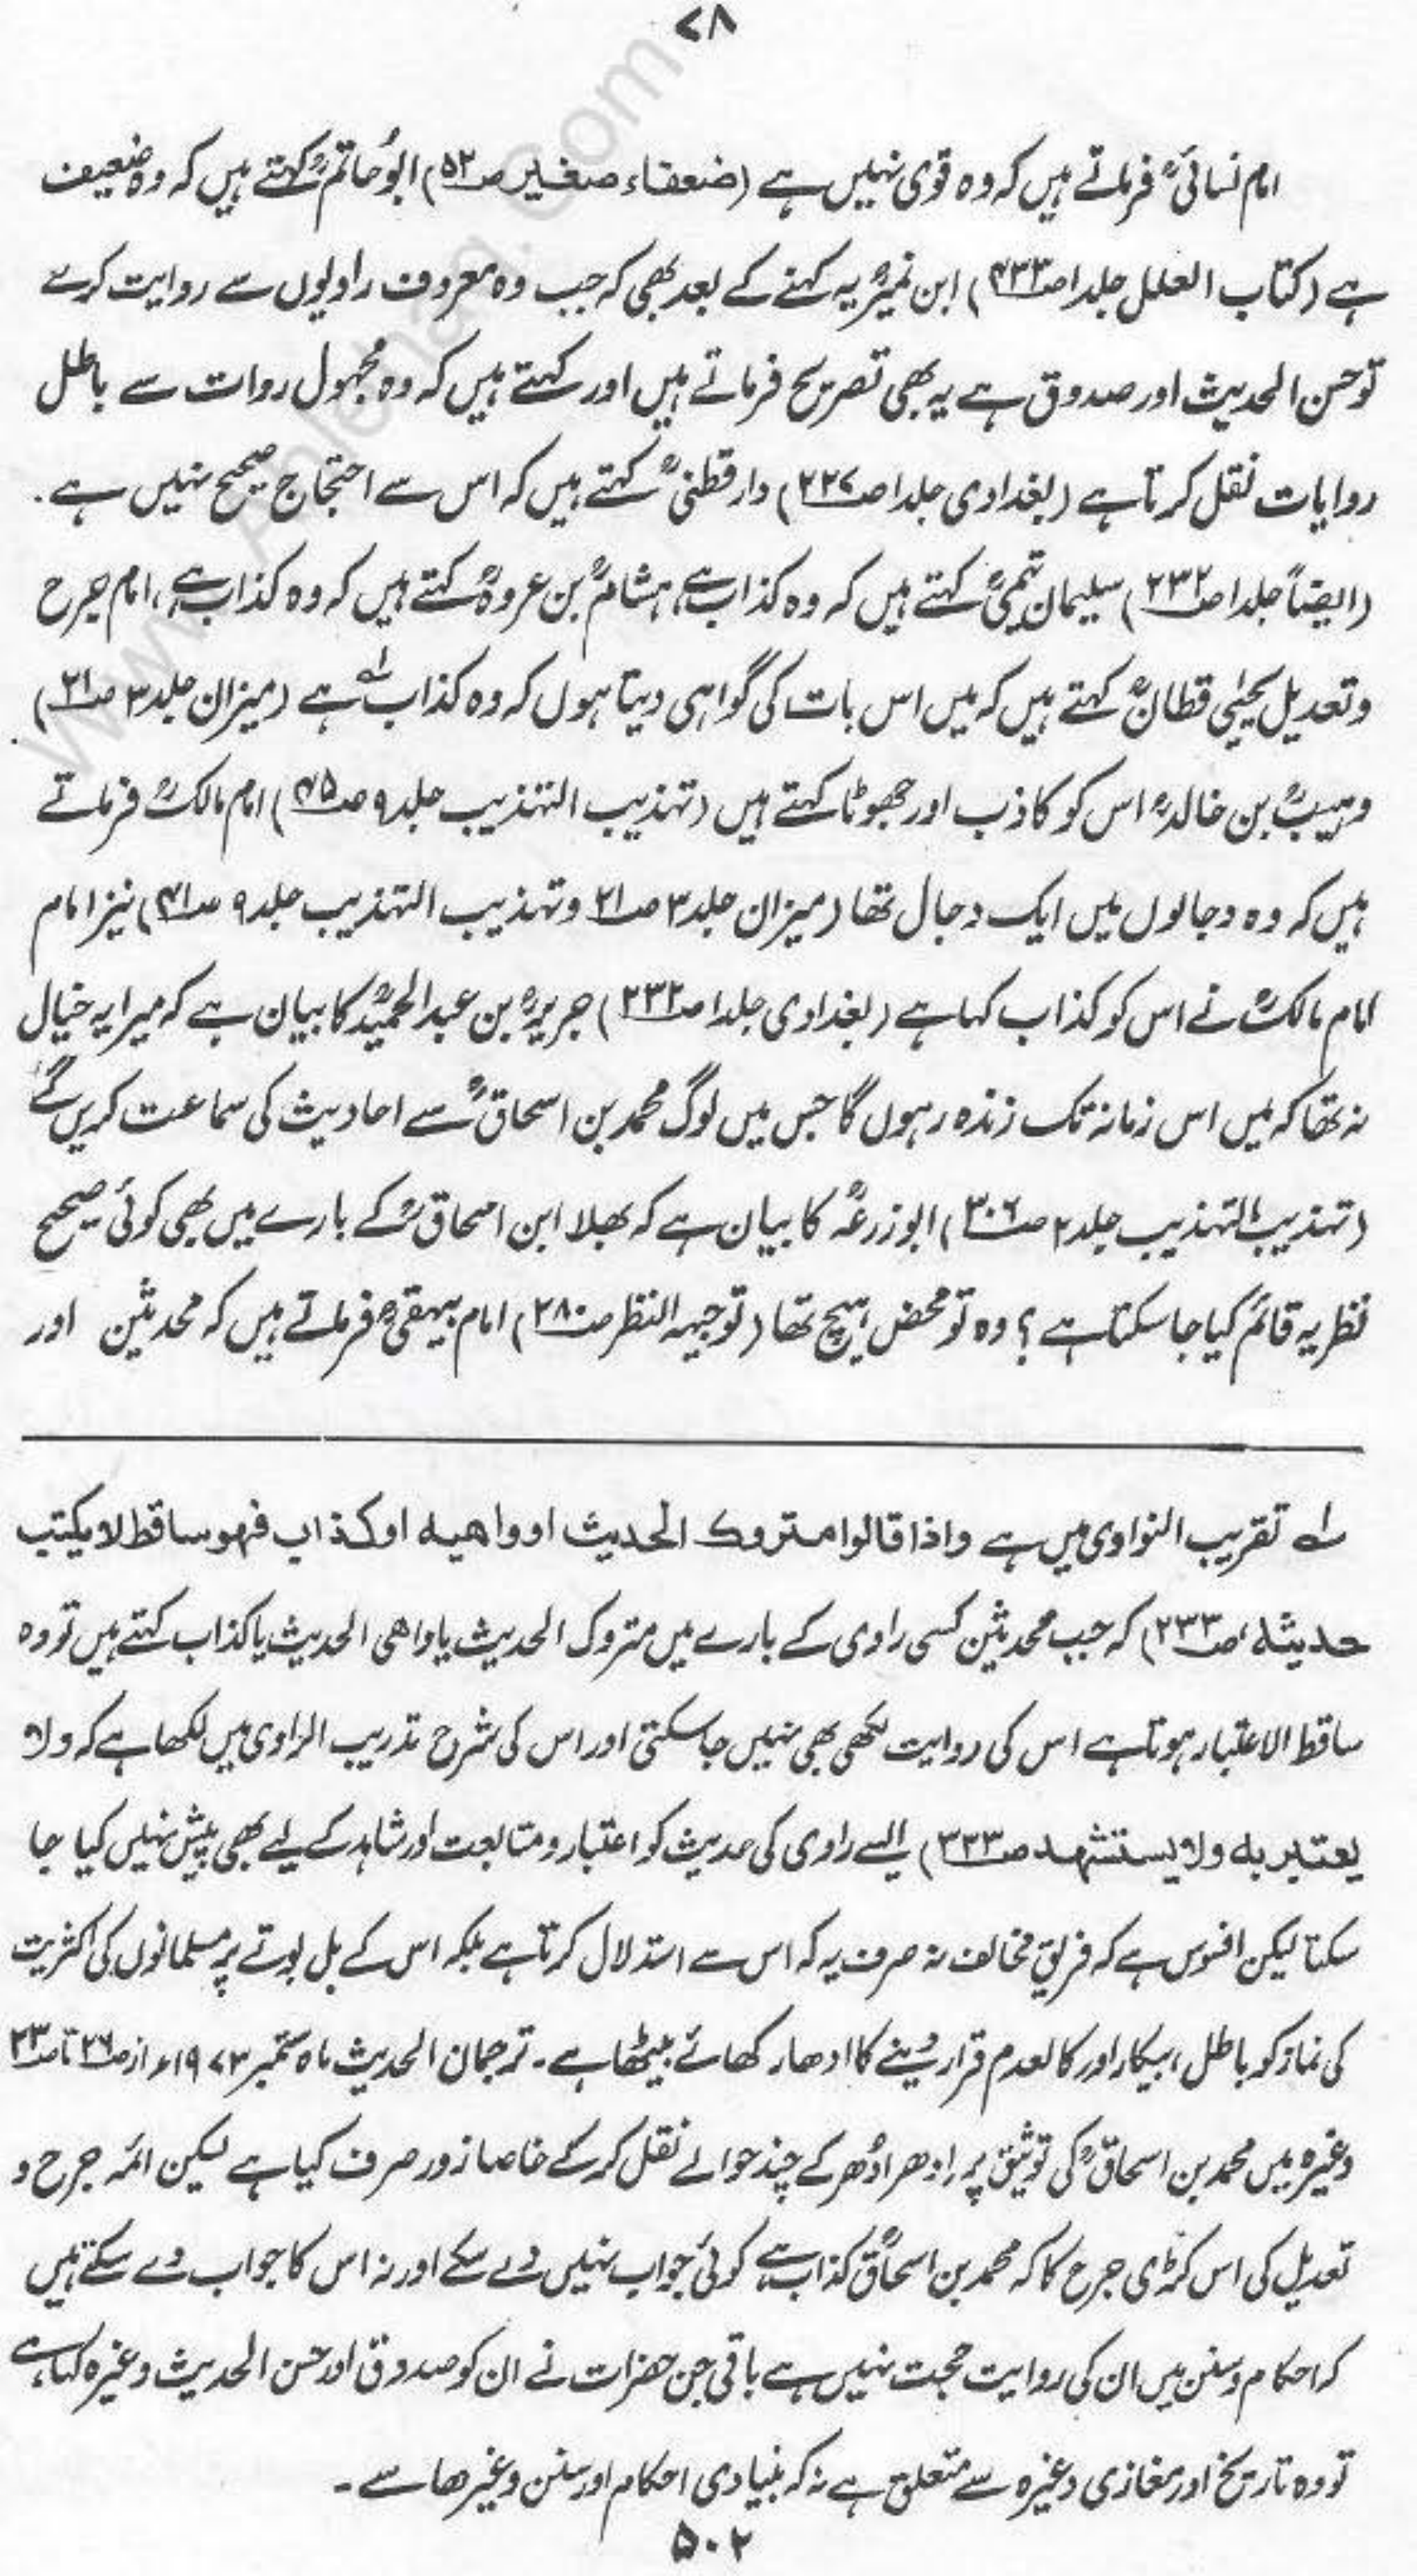 ۷۸
امام نسائیؒ فرماتے ہیں کہ وہ قوی نہیں ہے (ضعفاء صغیر ص۵۲) ابوُحاتمؒ کہتے ہیں کہ وہ ضعیف
ہے (کتاب العلل جلد۱ ص۴۳۳) ابن نمیرؒ یہ کہنے کے بعد بھی کہ جب وہ معروف راویوں سے روایت کرے
تو حسن الحدیث اور صدوق ہے یہ بھی تصریح فرماتے ہیں اور کہتے ہیں کہ وہ مجہول روات سے باطل
روایات نقل کرتا ہے (بغدادی جلد۱ ص۲۲۷) دارقطنیؒ کہتے ہیں کہ اس سے احتجاج صحیح نہیں ہے۔
(ایضاً جلد۱ ص۲۳۲) سلیمان تیمیؒ کہتے ہیں کہ وہ کذاب ہے، ہشامؒ بن عروہؒ کہتے ہیں کہ وہ کذاب ہے، امام جرح
وتعدیل یحیٰی قطانؒ کہتے ہیں کہ میں اس بات کی گواہی دیتا ہوں کہ وہ کذاب ہے (میزان جلد۳ ص۲۱)
وہیبؒ بن خالدؒ اس کو کاذب اور جھوٹا کہتے ہیں (تہذیب التہذیب جلد۹ ص۴۵) امام مالکؒ فرماتے
ہیں کہ وہ دجالوں میں ایک دجال تھا (میزان جلد۳ ص۲۱ وتہذیب التہذیب جلد۹ ص۴۱) نیز امام
امام مالکؒ نے اس کو کذاب کہا ہے (بغدادی جلد۱ ص۲۳۲) جریرؒ بن عبدالحمیدؒ کا بیان ہے کہ میرا یہ خیال
نہ تھا کہ میں اس زمانہ تک زندہ رہوں گا جس میں لوگ محمد بن اسحاقؒ سے احادیث کی سماعت کریں گے
(تہذیب التہذیب جلد۲ ص۳۰۶) ابوزرعہؒ کا بیان ہے کہ بھلا ابن اسحاقؒ کے بارے میں بھی کوئی صحیح
نظریہ قائم کیا جا سکتا ہے؟ وہ تو محض ہیچ تھا (توجیہ النظر ص۲۸۰) امام بیہقیؒ فرماتے ہیں کہ محدثین اور
لہ تقریب النواوی میں ہے واذا قالوا متروك الحدیث او واهیه او کذاب فهو ساقط لا یکتب
حدیثه، ص۲۳۳) کہ جب محدثین کسی راوی کے بارے میں متروک الحدیث یا واھی الحدیث یا کذاب کہتے ہیں تو وہ
ساقط الاعتبار ہوتا ہے اس کی روایت لکھی بھی نہیں جا سکتی اور اس کی شرح تدریب الراوی میں لکھا ہے کہ ولا
یعتبر به ولا یستشهد ص۲۳۳) ایسے راوی کی حدیث کو اعتبار ومتابعت اور شاہد کے لیے بھی پیش نہیں کیا جا
سکتا لیکن افسوس ہے کہ فریق مخالف نہ صرف یہ کہ اس سے استدلال کرتا ہے بلکہ اس کے بل بوتے پر مسلمانوں کی اکثریت
کی نماز کو باطل، بیکار اور کالعدم قرار دینے کا ادھار کھائے بیٹھا ہے۔ ترجمان الحدیث ماہ ستمبر ۱۹۷۳ء از ص۲۶ تا ص۳۳
وغیرہ میں محمد بن اسحاقؒ کی توثیق پر اِدھر اُدھر کے چند حوالے نقل کرکے خاصا زور صرف کیا ہے لیکن ائمہ جرح و
تعدیل کی اس کڑی جرح کا کہ محمد بن اسحاقؒ کذاب ہے کوئی جواب نہیں دے سکے اور نہ اس کا جواب دے سکتے ہیں
کہ احکام وسنن میں ان کی روایت حجت نہیں ہے باقی جن حضرات نے ان کو صدوق اور حسن الحدیث وغیرہ کہا ہے
تو وہ تاریخ اور مغازی وغیرہ سے متعلق ہے نہ کہ بنیادی احکام اور سنن وغیرھا سے۔
۵۰۲